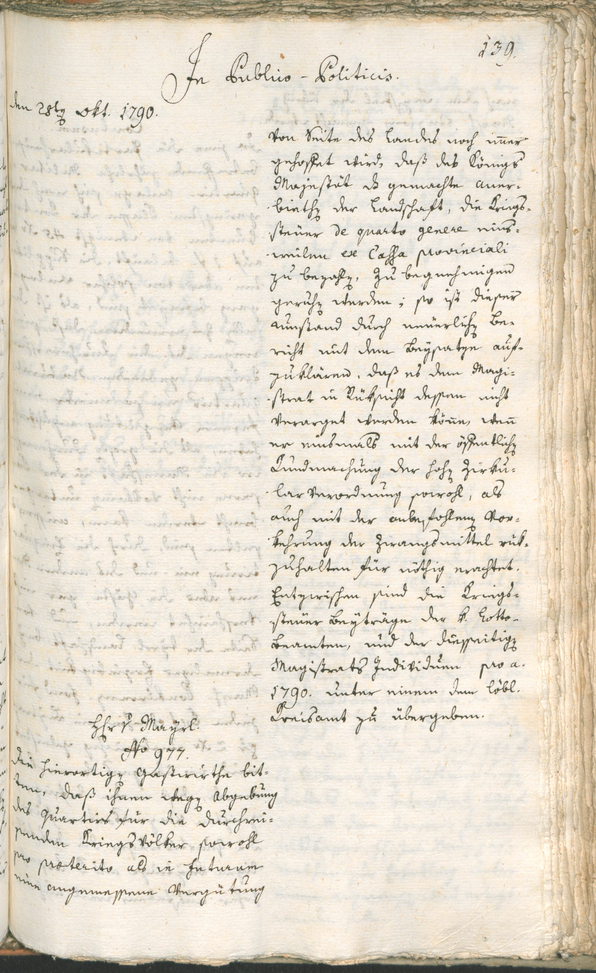 139.
In Publico-Politicis.
den 28ten Okt. 1790.
von Seite des Landes noch immer
gehoffet wird, daß des Königs
Majestät die gemachte Aner-
biethen der Landschaft, die Kriegs-
steuer de quarto genere eins-
weilen ex Cassa provinciali
zu bezahlen, zu begnehmigen
geruhen werden; so ist dieser
Anstand durch neuerlichen Be-
richt mit dem Beysatze auf-
zuklären, daß es dem Magi-
strat in Rüksicht dessen nicht
verarget werden könne, wenn
er einsmals mit der öffentlichen
Kundmachung der hohen Zirku-
larverordnung sowohl, als
auch mit der anbefohlenen Vor-
kehrung der Zwangsmittel rük-
zuhalten für nöthig erachtet.
Entzwischen sind die Kriegs-
steuer Beyträge der k. Lotto-
beamten, und der diesseitigen
Magistrats Individuen pro a.
1790. unter einem dem löbl.
Kreisamt zu übergeben.
Hr. v. Mayrl.
No 977.
Die hierortigen Gastwirthe bit-
ten, daß ihnen wegen Abgebung
des Quartiers für die durchrei-
senden Kriegsvölker sowohl
pro praeterito als in futurum
eine angemessene Vergütung